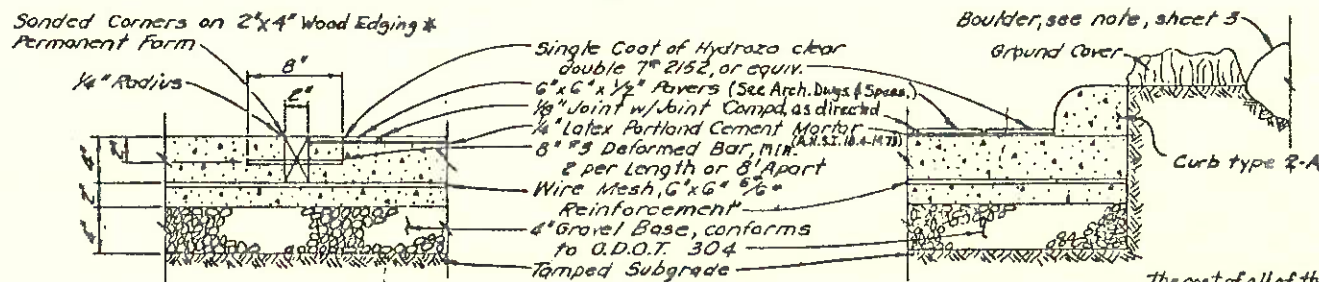 Sanded Corners on 2"x4" Wood Edging *
Permanent Form
1/4" Radius
8"
2"
2"
4"
2"
4"
Single Coat of Hydrozo clear
double 7® 2152, or equiv.
6"x6"x1/2" Pavers (See Arch. Dwgs. & Specs.)
1/8" Joint w/Joint Compd, as directed
1/4" Latex Portland Cement Mortar
(A.N.S.I. 118.4-1973)
8" #3 Deformed Bar, min.
2 per Length or 8' Apart
Wire Mesh, 6"x6" 6/6"
Reinforcement
4" Gravel Base, conforms
to O.D.O.T. 304
Tamped Subgrade
Boulder, see note, sheet 3
Ground Cover
Curb type 2-A
The cost of all of th